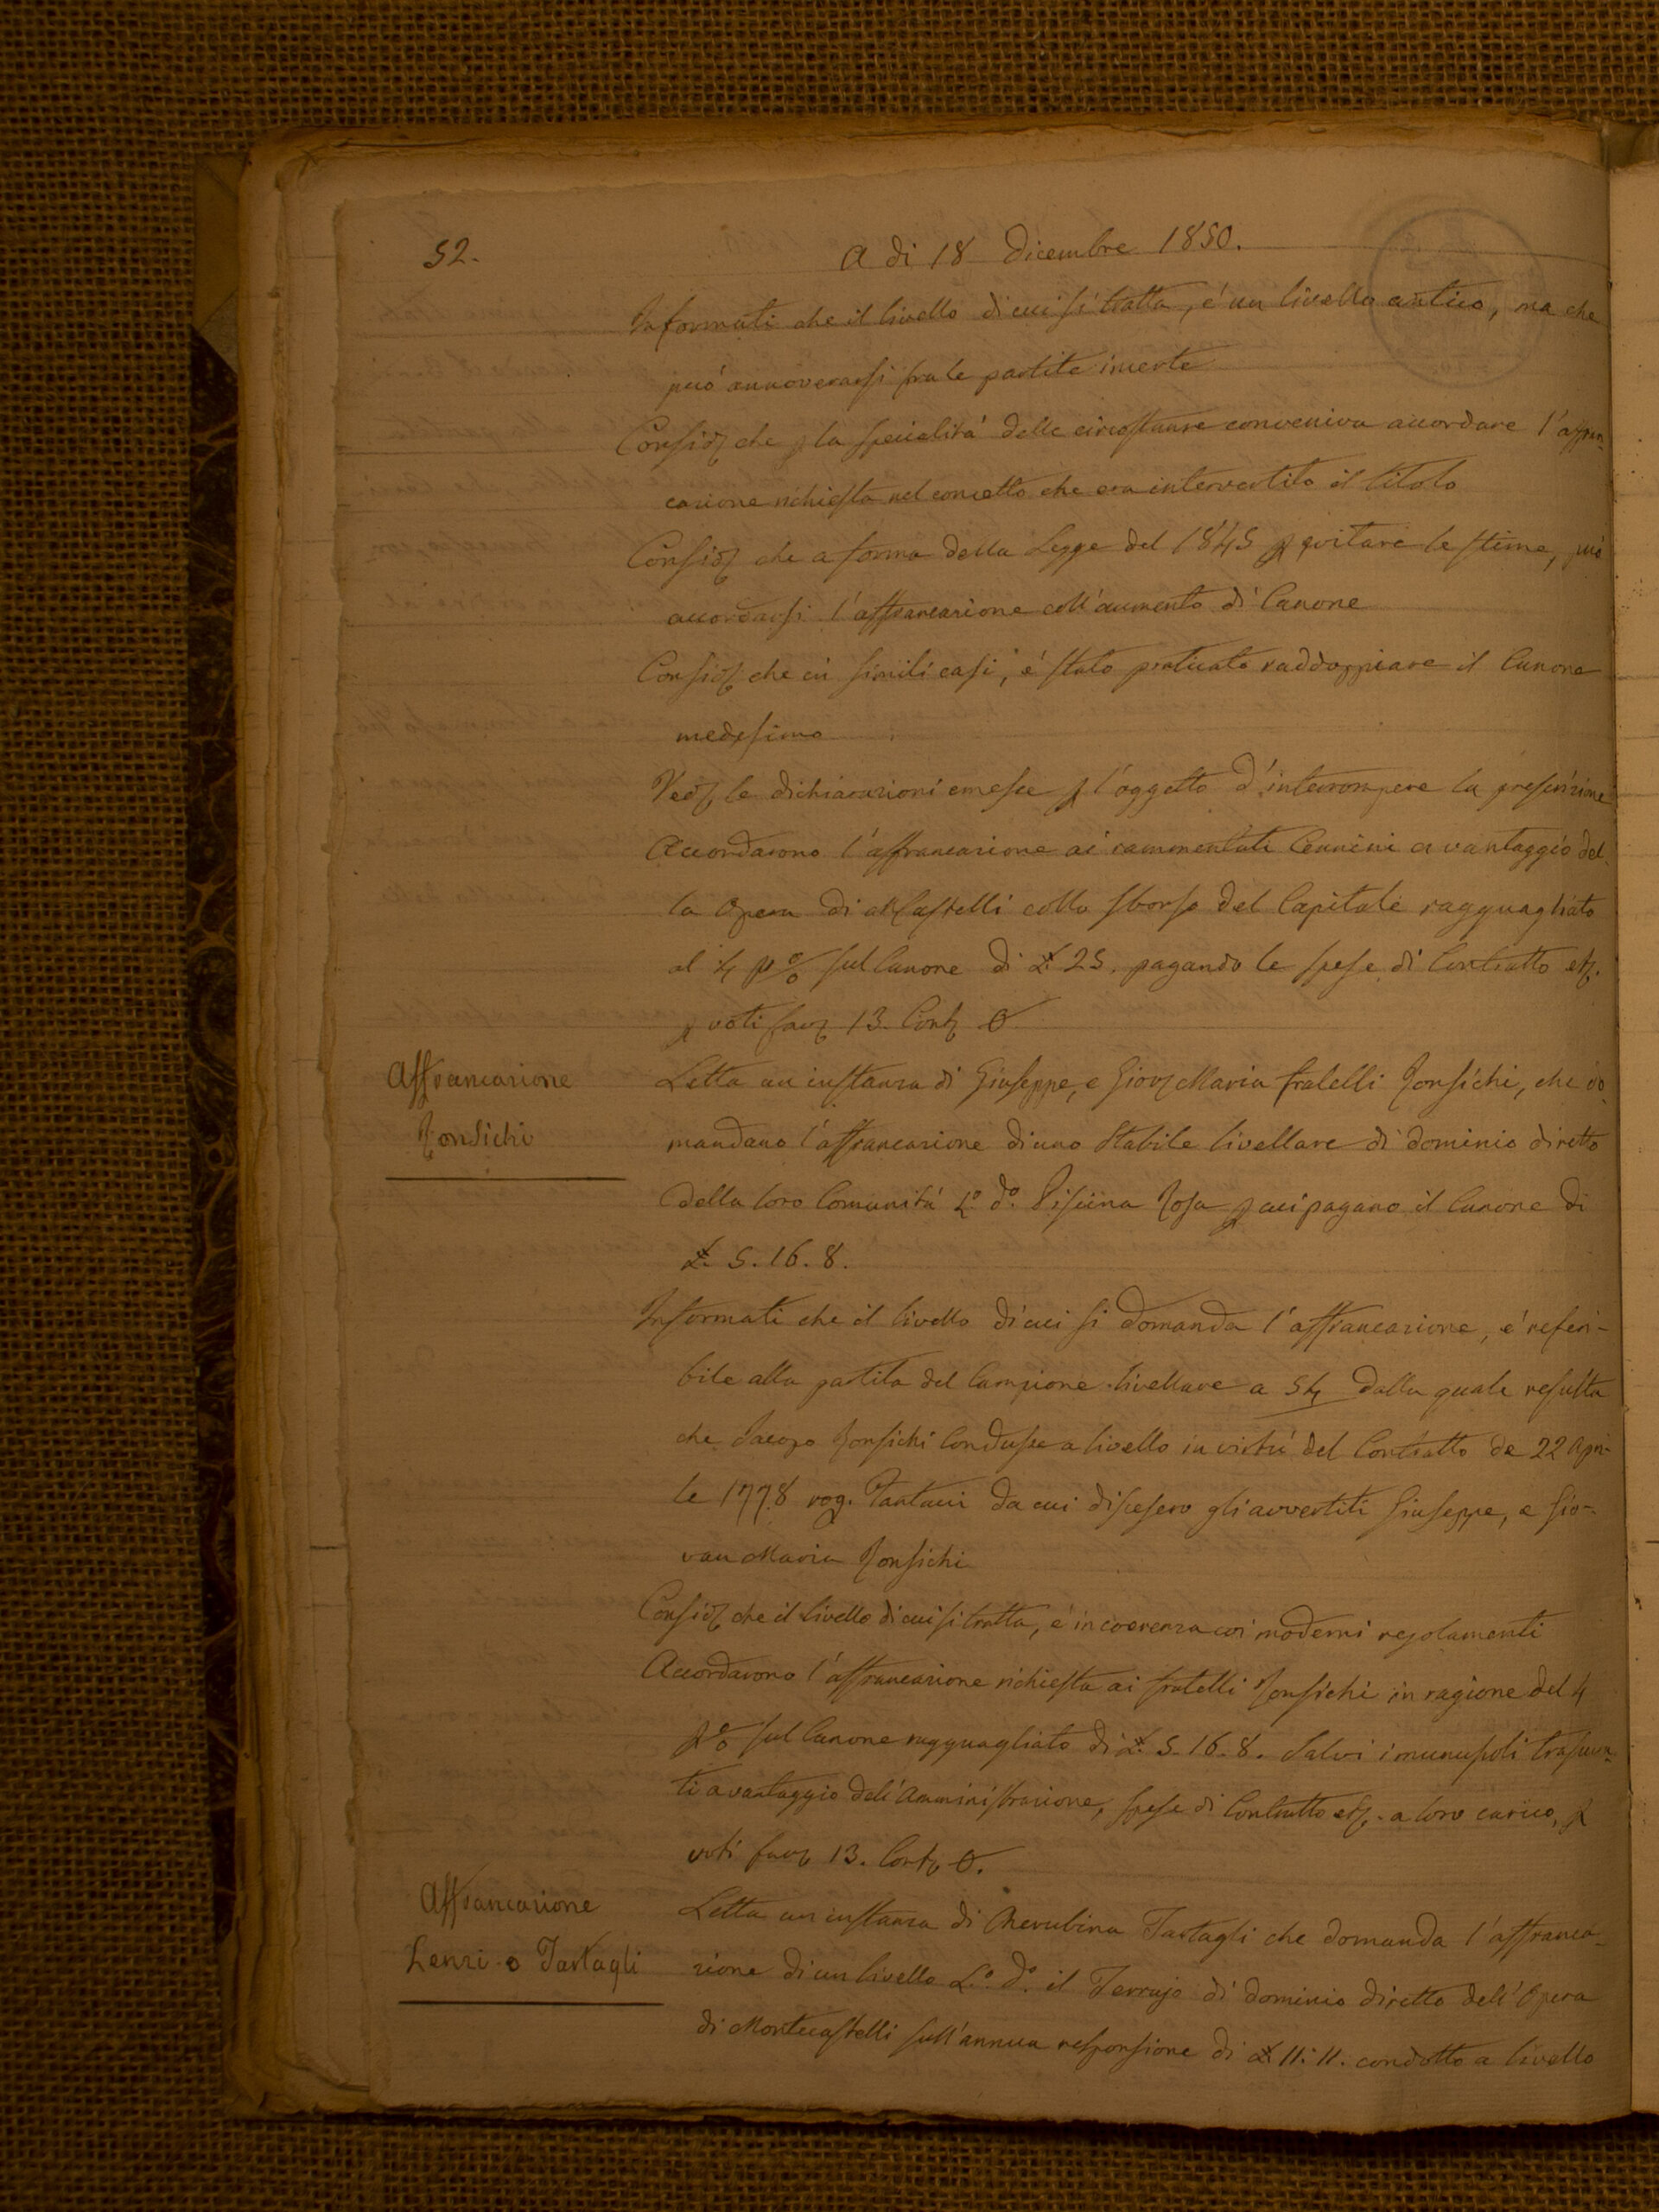 52.
A di 18 Dicembre 1850.
Informati che il livello di cui si tratta, é un livello antico, ma che
puó annoverarsi fra le partite incerte
Consid che p la specialitá delle circostanze conveniva accordare l'affran-
cazione richiesta nel concetto che era intervertito il titolo
Consid che a forma della Legge del 1845 p evitare le stime, può
accordarsi l'affrancazione coll'aumento di Canone
Consid che in simili casi, é stato praticato raddoppiare il Canone
medesimo
Ved le dichiarazioni emesse p l'oggetto d'interrompere la prescrizione
Accordarono l'affrancazione ai rammentati Cennini a vantaggio del-
la Opera di MCastelli collo sborso del Capitale ragguagliato
al 4 p % sul Canone di £ 25. pagando le spese di Contratto et.
p voti fav 13. Cont 0
Affrancazione
Ronsichi
Letta un instanza di Giuseppe, e Giov Maria fratelli Ronsichi, che do-
mandano l'affrancazione di uno Stabile livellare di dominio diretto
della loro Comunitá L.º d.º Piscina Rosa p cui pagano il Canone di
£. 5. 16. 8.
Informati che il livello di cui si domanda l'affrancazione, é referi-
bile alla partita del Campione livellare a 54 dalla quale resulta
che Jacopo Ronsichi Condusse a livello in virtú del Contratto de 22 Apri-
le 1778 rog. da cui discesero gli avvertiti Giuseppe, e Gio-
van Maria Ronsichi
Consid che il livello di cui si tratta, é in coerenza coi moderni regolamenti
Accordarono l'affrancazione richiesta ai fratelli Ronsichi in ragione del 4
p % sul Canone ragguagliato di £. 5. 16. 8. Salvi i
ti a vantaggio dell'Amministrazione, spese di Contratto et. a loro carico, p
voti fav 13. Cont 0.
Affrancazione
Lenzi e Tartagli
Letta un instanza di Cherubina Tartagli che domanda l'affranca-
zione di un livello L.º d.º il di dominio diretto dell'Opera
di Montecastelli sull'annua responsione di £ 11. 11. condotto a livello